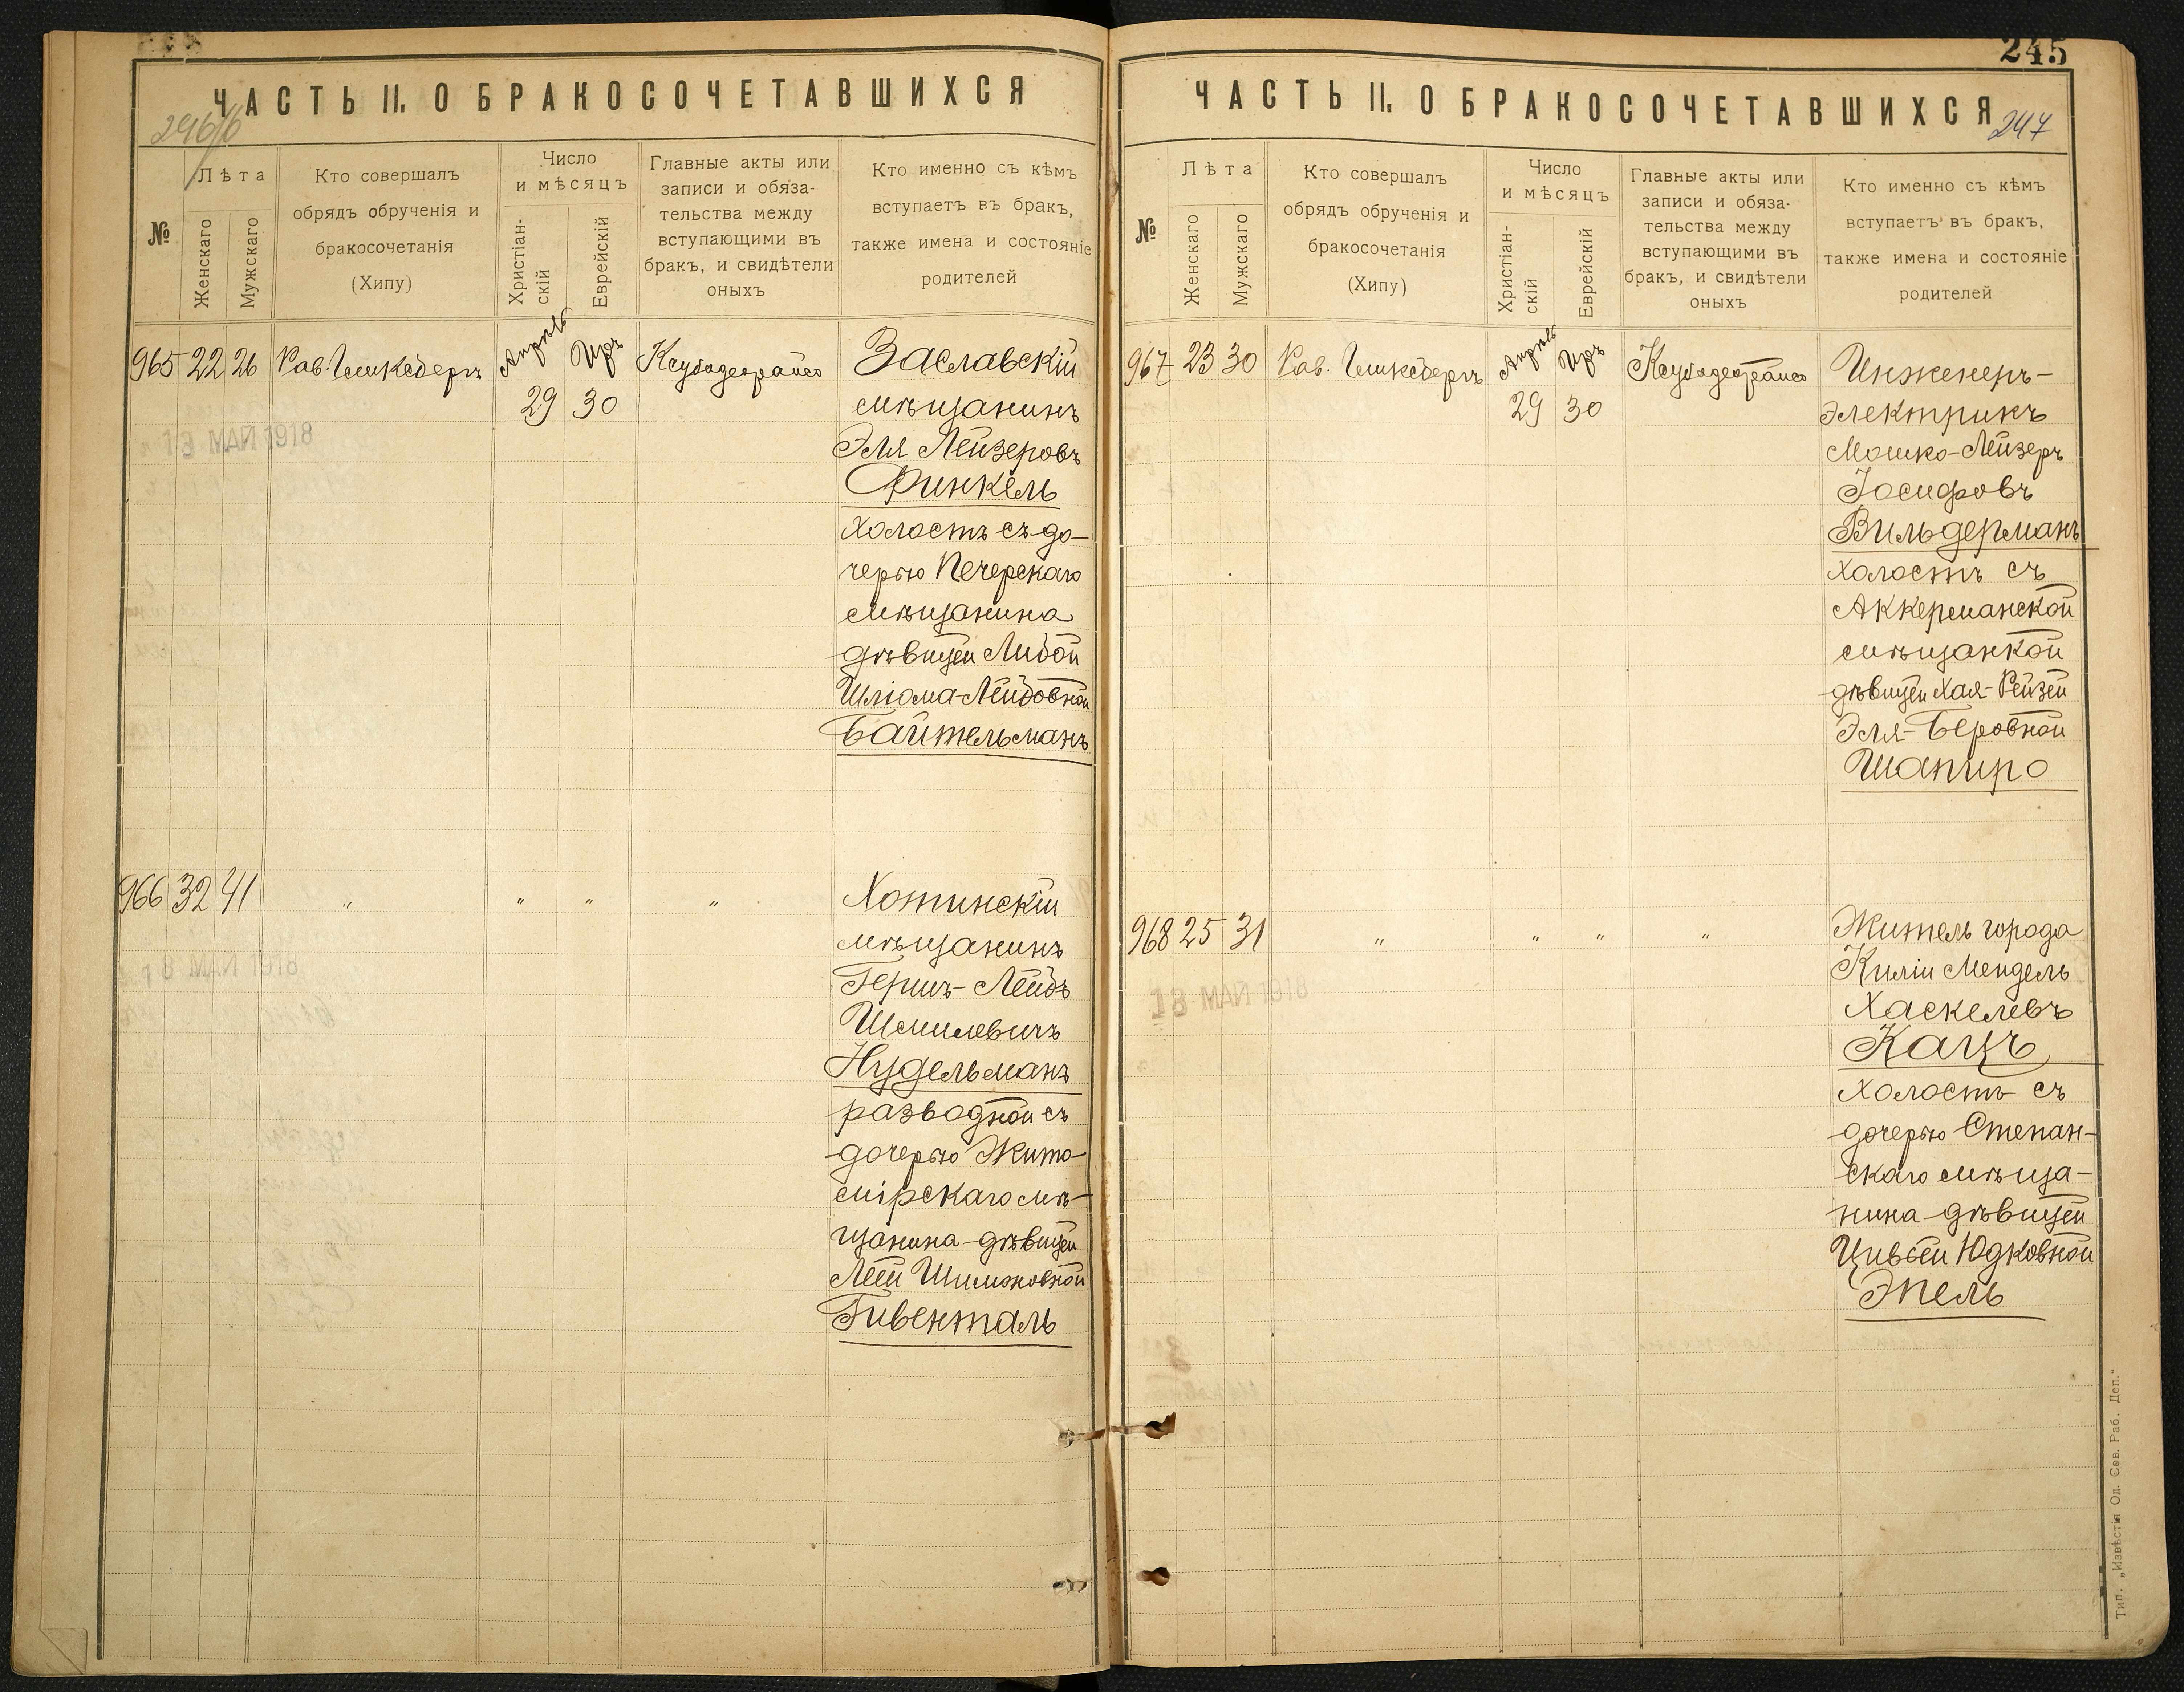 ЧАСТЬ II. О БРАКОСОЧЕТАВШИХСЯ
№
Лѣта
Женскаго
Мужскаго
Кто совершалъ
обрядъ обрученія и
бракосочетанія
(Хипу)
Число
и мѣсяцъ
Христіан-
скій
Еврейскій
Главные акты или
записи и обяза-
тельства между
вступающими въ
бракъ, и свидѣтели
оныхъ
Кто именно съ кѣмъ
вступаетъ въ бракъ,
также имена и состояніе
родителей
965 22 26 Рав. Апрѣль Иръ
29 30
Заславскій
мѣщанинъ
Эля Лейзеровъ
Финкель
холостъ съ до-
черью Печерскаго
мѣщанина
дѣвицей Либой
Шліома-Лейбовной
Байтельманъ
13 МАЙ 1918
966 32 41 " " " "
Хотинскій
мѣщанинъ
Гершъ-Лейбъ
Шмилевичъ
Нудельманъ
разводной съ
дочерью Жито-
мірскаго мѣ-
щанина дѣвицей
Леей Шимоновной
Гивенталь
18 МАЙ 1918
245
ЧАСТЬ II. О БРАКОСОЧЕТАВШИХСЯ
247
№
Лѣта
Женскаго
Мужскаго
Кто совершалъ
обрядъ обрученія и
бракосочетанія
(Хипу)
Число
и мѣсяцъ
Христіан-
скій
Еврейскій
Главные акты или
записи и обяза-
тельства между
вступающими въ
бракъ, и свидѣтели
оныхъ
Кто именно съ кѣмъ
вступаетъ въ бракъ,
также имена и состояніе
родителей
967 23 30 Рав. Апрѣль Иръ
29 30
Инженеръ-
электрикъ
Мошко-Лейзеръ
Іосифовъ
Вильдерманъ
холостъ съ
Аккерманской
мѣщанкой
дѣвицей Хая-Рейзей
Эля-Беровной
Шапиро
968 25 31 " " " "
Житель города
Киліи Мендель
Хаскелевъ
Кацъ
холостъ съ
дочерью Степан-
скаго мѣща-
нина дѣвицей
Цивьей Юдковной
Эпель
18 МАЙ 1918
Тип. „Извѣстія Од. Сов. Раб. Деп."